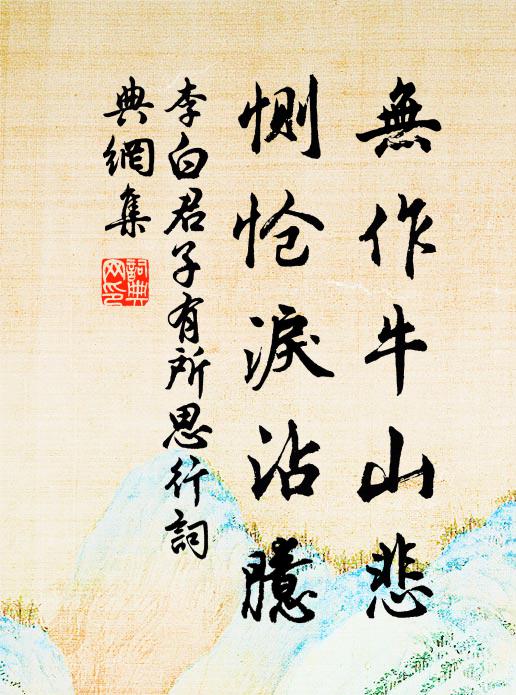 無作牛山悲
惻怆淚沾臆
李白君子有所思行詞
典網集
詞典
网印